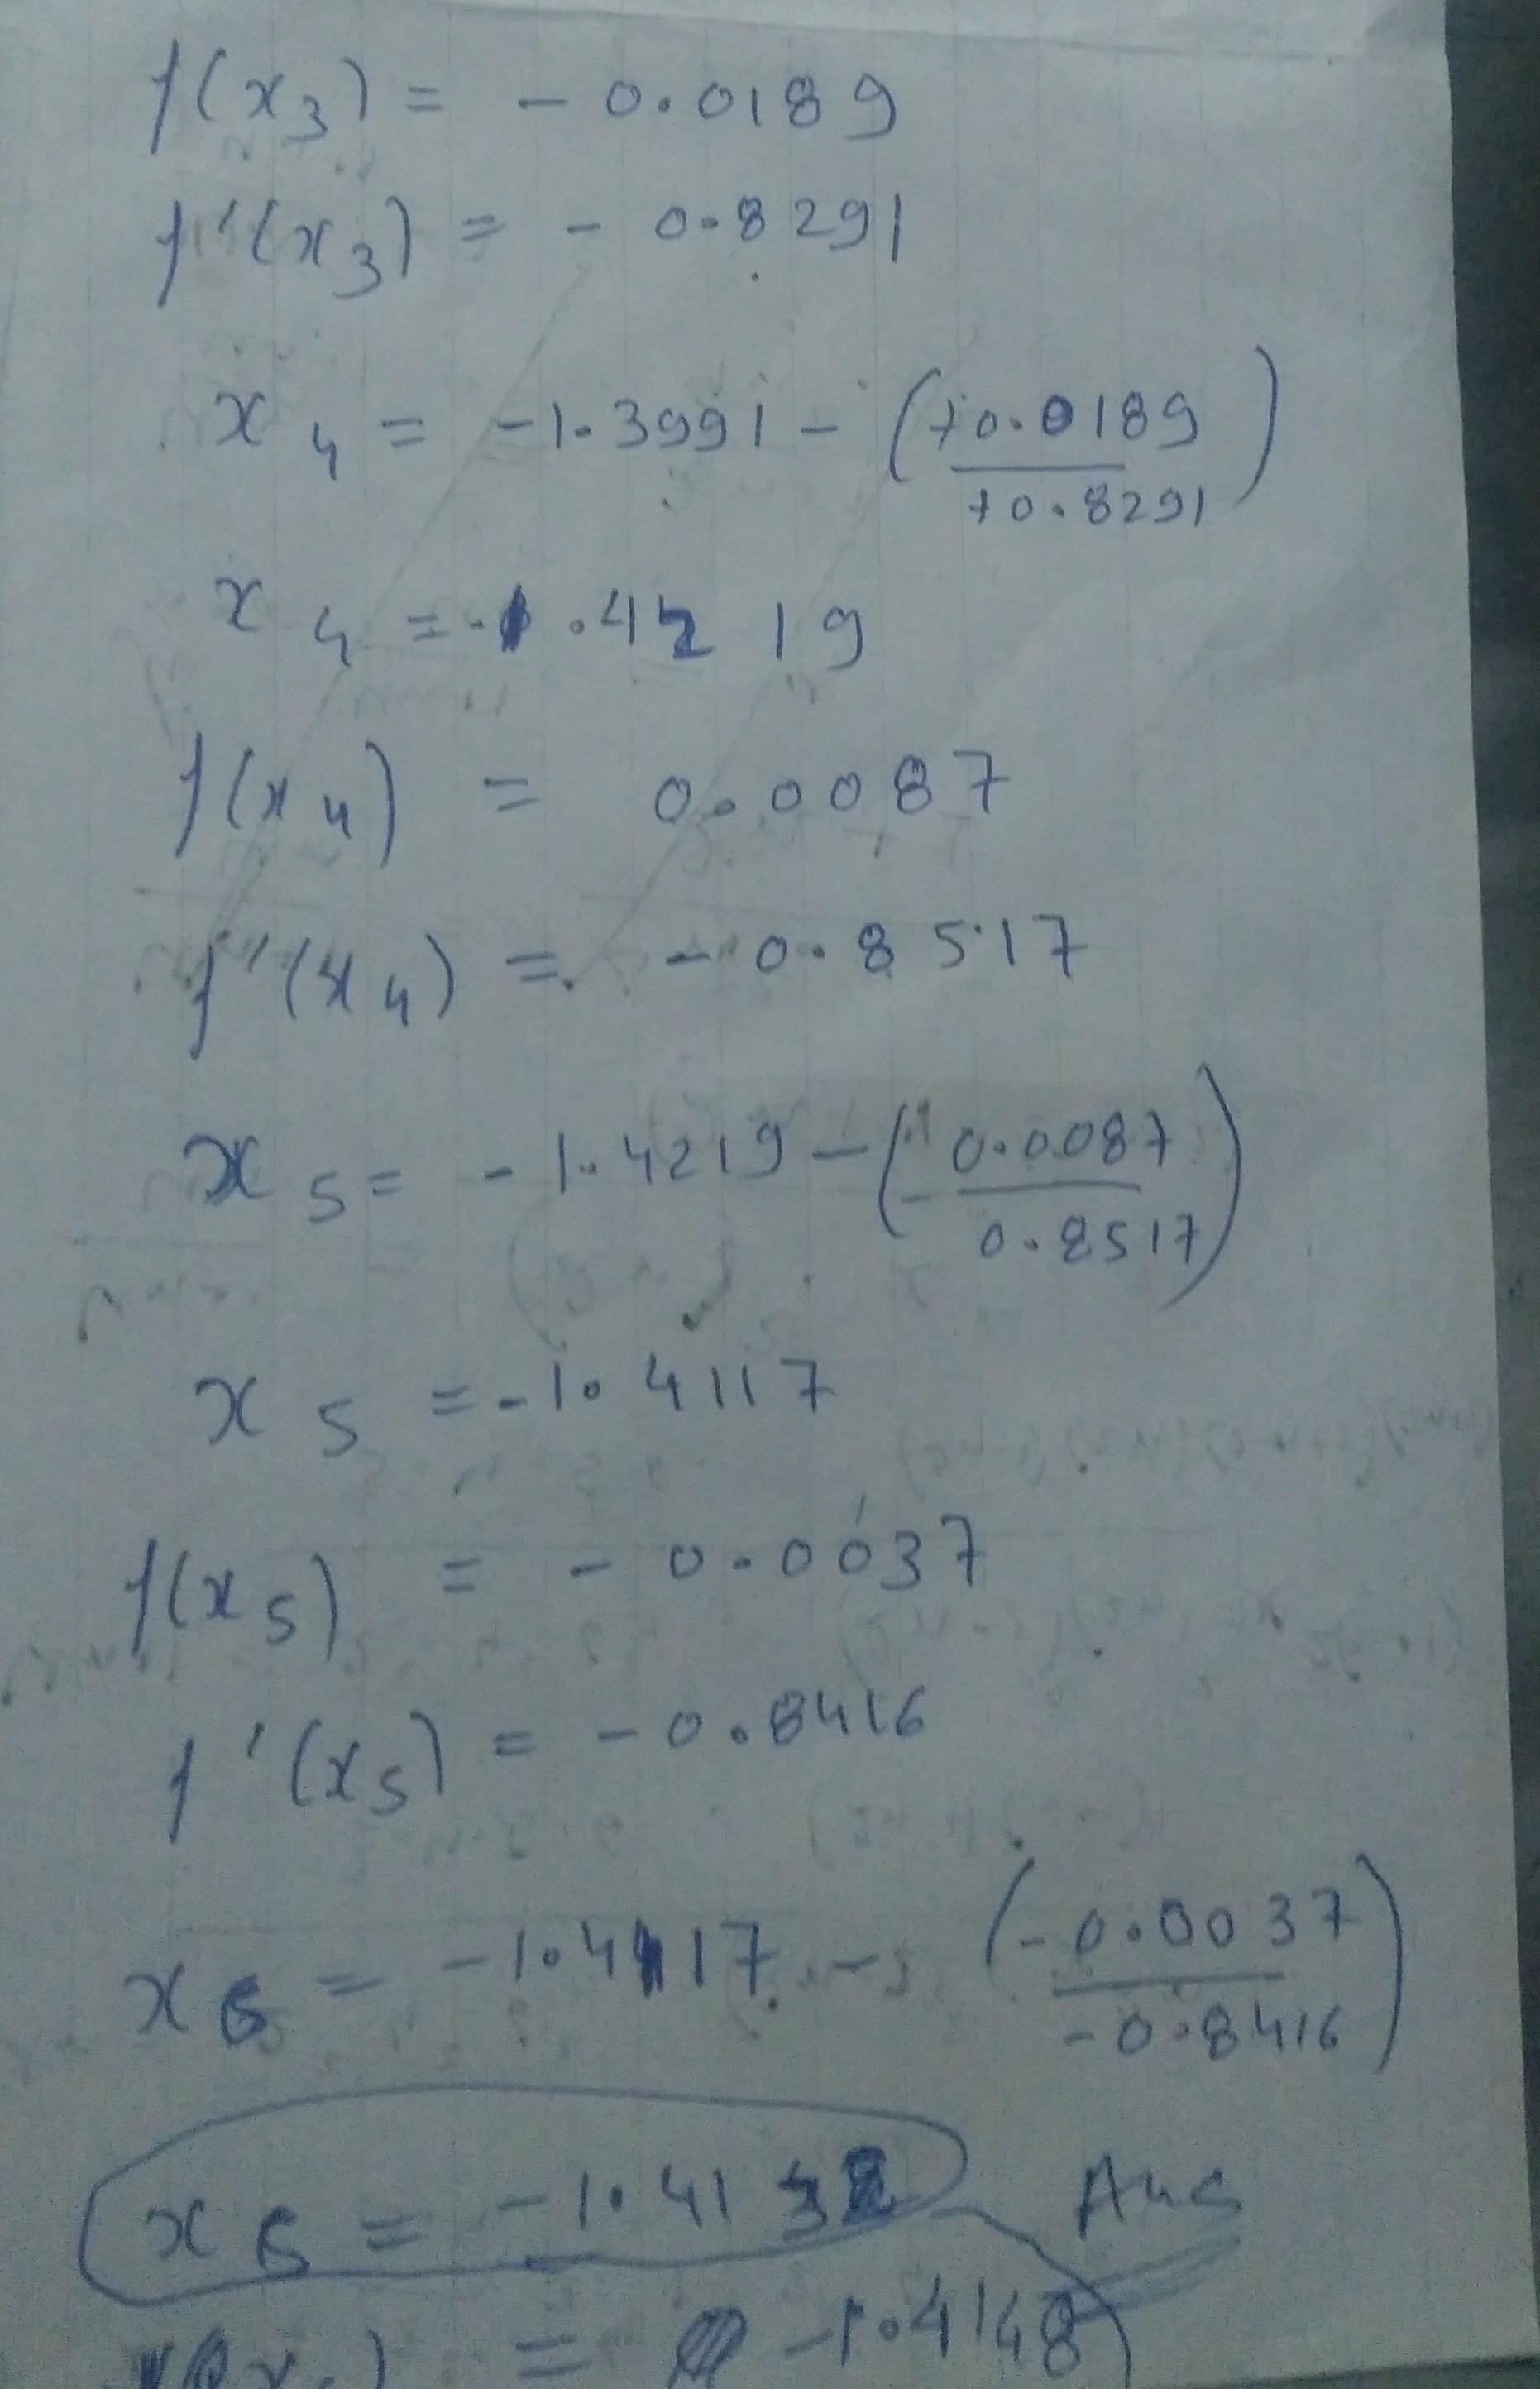 f(x3) = - 0.0189
f'(x3) = - 0.8291
x4 = -1.3991 - (+0.0189 / +0.8291)
x4 = -1.4219
f(x4) = 0.0087
f'(x4) = - 0.8517
x5 = - 1.4219 - (- 0.0087 / 0.8517)
x5 = -1.4117
f(x5) = - 0.0037
f'(x5) = - 0.8416
x6 = -1.4117 - (-0.0037 / -0.8416)
x6 = -1.41 Ans
= -1.4148